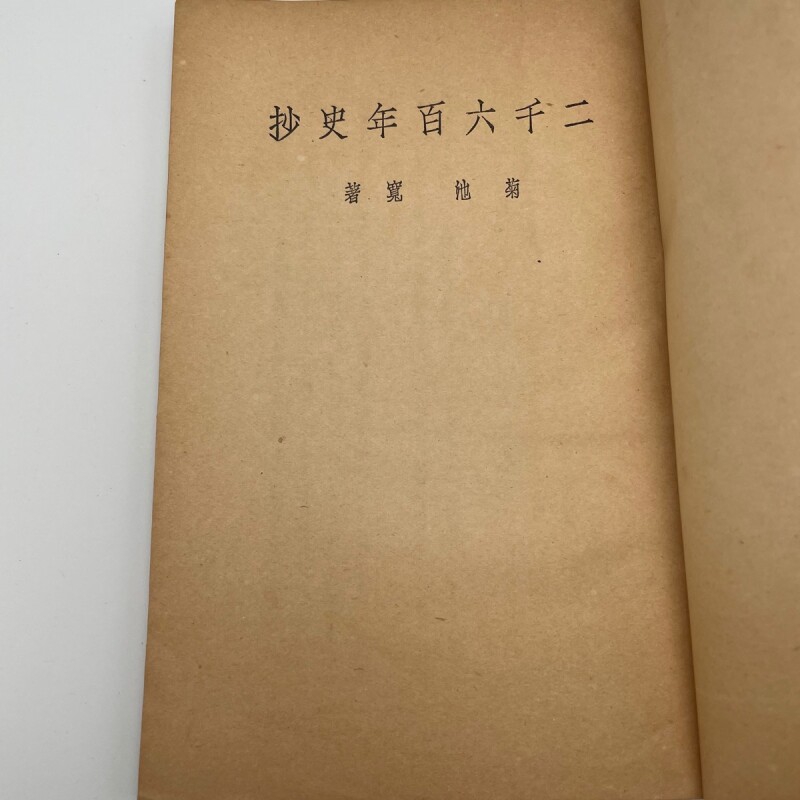 二千六百年史抄
菊池 寬著